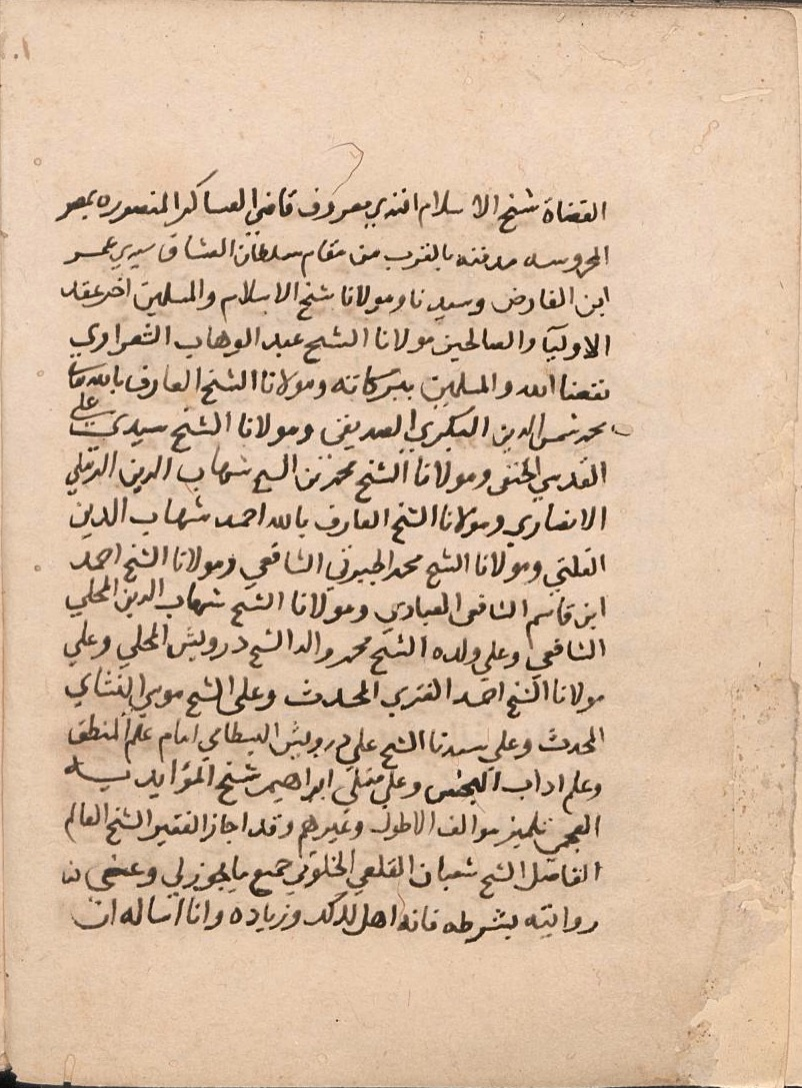 القضاة شيخ الاسلام افندي معروف قاضي العساكر المنصوره بمصر
المحروسه مدفنه بالقرب من مقام سلطان العشاق سيدي عمر
ابن الفارض وسيدنا ومولانا شيخ الاسلام والمسلمين اخر عقد
الاوليآ والصالحين مولانا الشيخ عبد الوهاب الشعراوي
نفعنا الله والمسلمين ببركاته ومولانا الشيخ العارف بالله
محمد شمس الدين البكري الصديقي ومولانا الشيخ سيدي علي
القدسي الحنفي ومولانا الشيخ محمد بن الشيخ شهاب الدين الرملي
الانصاري ومولانا الشيخ العارف بالله احمد شهاب الدين
ومولانا الشيخ محمد الجبرتي الشافعي ومولانا الشيخ احمد
ابن قاسم الشافعي العبادي ومولانا الشيخ شهاب الدين المحلي
الشافعي وعلي ولده الشيخ محمد والد الشيخ درويش المحلي وعلي
مولانا الشيخ احمد المحدث وعلى الشيخ موسي
المحدث وعلي سيدنا الشيخ علي درويش البسطامي امام علم المنطق
وعلم اداب البحث وعلي منلي ابراهيم شيخ
العجمي تلميذ موالف الاطول وغيرهم وقد اجاز الفقير الشيخ العالم
الفاضل الشيخ شعبان القلعي الخلوتي جميع ما يجوز لي وعني
روايته بشرطه فانه اهل لذلك وزياده وانا اساله ان